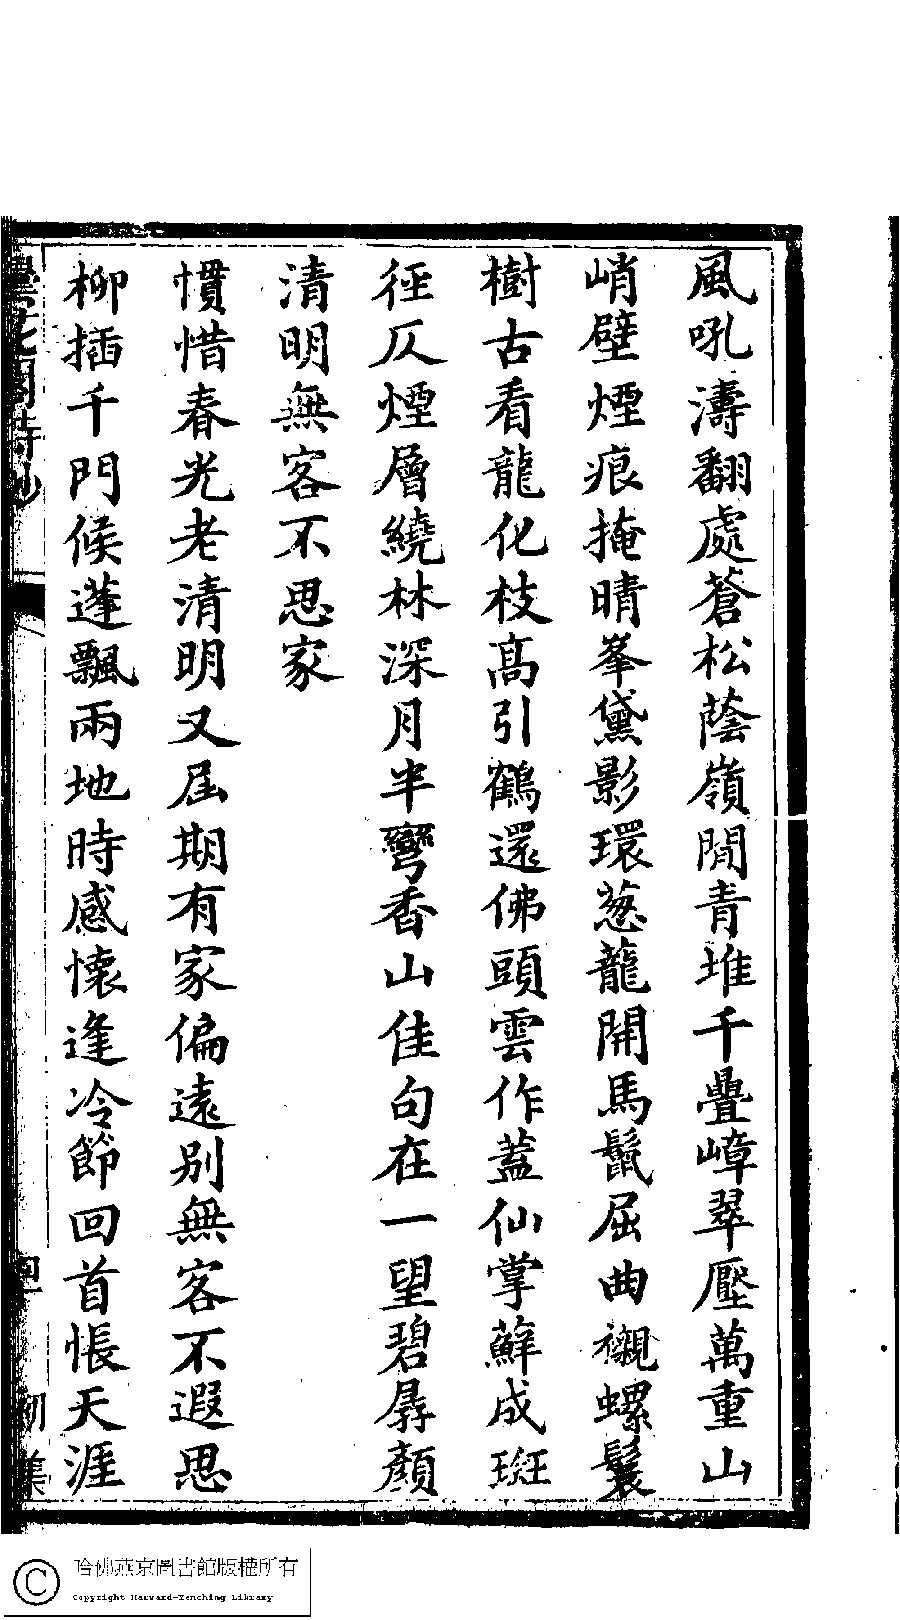 風吼濤翻處蒼松蔭嶺閒青堆千疊嶂翠壓萬重山
峭壁煙痕掩晴峯黛影環葱蘢開馬鬣屈曲襯螺鬟
樹古看龍化枝高引鶴還佛頭雲作蓋仙掌蘚成斑
徑仄煙層繞林深月半彎香山佳句在一望碧孱顏
清明無客不思家
慣惜春光老清明又屆期有家偏遠別無客不遐思
柳插千門候蓬飄兩地時感懷逢冷節回首悵天涯
曇花閣詩鈔
初集
哈佛燕京圖書館版權所有
Copyright Harvard-Yenching Library